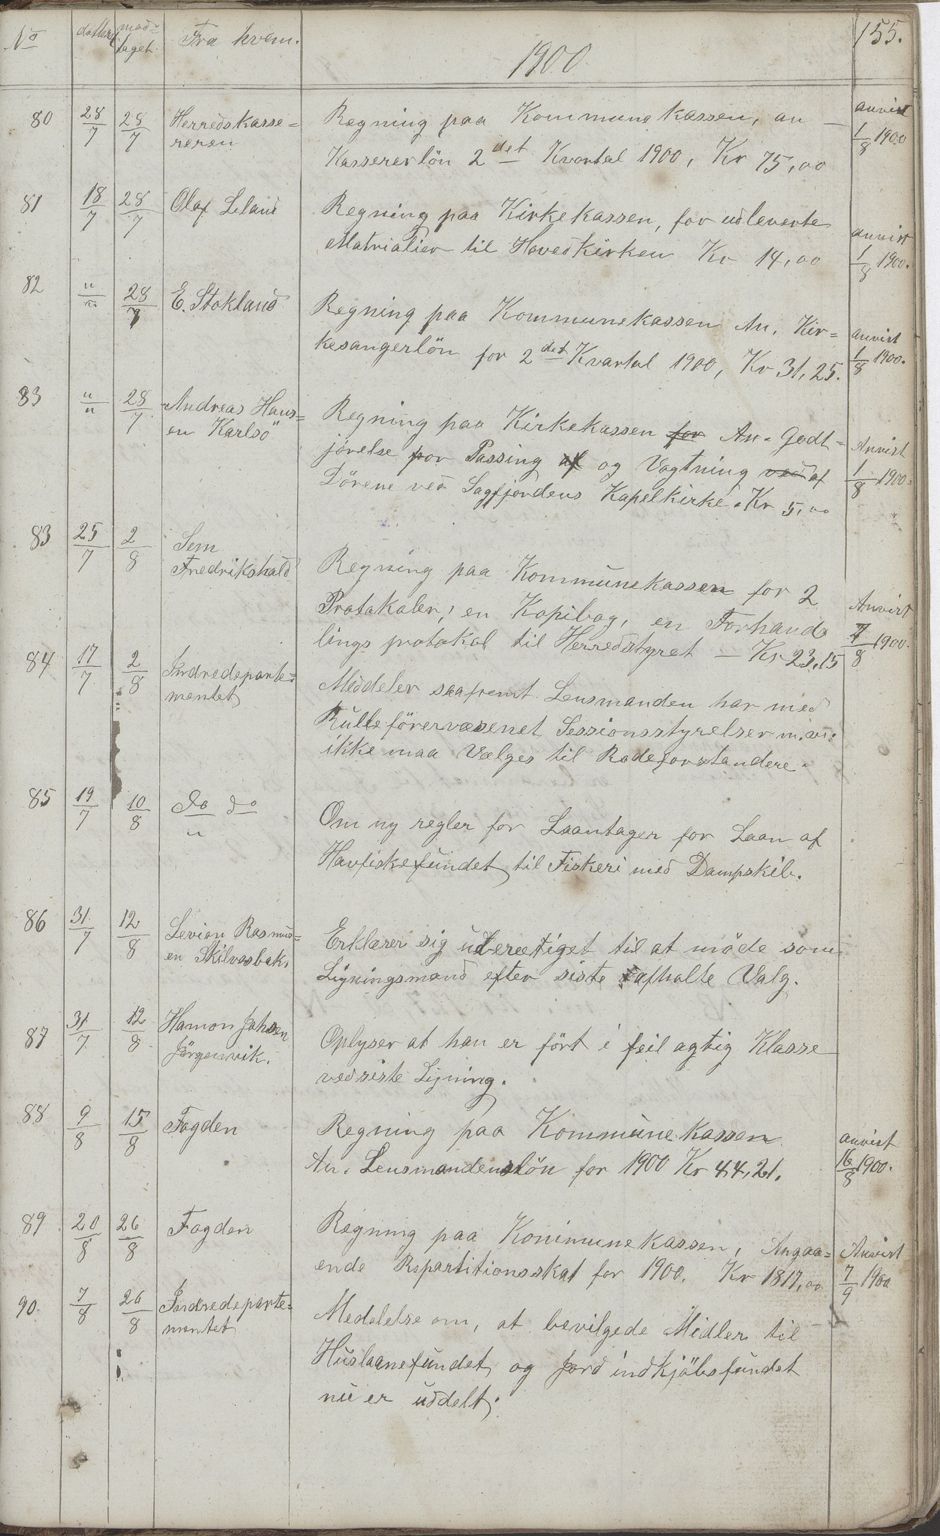 No dattert mod= Fra hvem. 155.
taget
1900
80 28/7 28/7 Herredskasse= Regning paa Kommunekassen, an— anvist
reren Kassererlön 2det Kvartal 1900, Kr 75,00 1/8 1900
81 18/7 28/7 Olaf Leland Regning paa Kirkekassen, for udleverte anvist
Matrialier til Hovedkirken Kr 14,00 1/8 1900.
82 "/" 28/7 E. Stokland Regning paa Kommunekassen An. Kir= anvist
kesangerlön for 2det Kvartal 1900, Kr 31,25. 1/8 1900.
83 "/" 28/7 Andreas Hans= Regning paa Kirkekassen for An. Godt= Anvist
en Karlsö jörelse for Passing af og Vagtning ved af 1/8 1900.
Dörene ved Sagfjordens Kapelkirke. Kr 5,00
83 25/7 2/8 Sem Regning paa Kommunekassen for 2
Fredrikshald Protakoler, en Kopibog, en Forhand= Anvist
lings protokol til Herredstyret — Kr 23,15 7/8 1900.
84 17/7 2/8 Indredeparte= Meddeler saafremt Lensmanden har med
mentet Rulleförervæsenet Sessionsstyrelser m.v.
ikke maa Vælges til Rodeforstandere.
85 19/7 10/8 Do do Om ny regler for Laantager for Laan af
" Havfiskefundet til Fiskeri med Dampskib.
86 31/7 12/8 Levion Rasmus= Erklærer sig uberettiget til at möde som
en Skilvasbak, Ligningsmand efter siste afholte Valg.
87 31/7 12/8 Hamon Johsen Oplyser at han er fört i feil agtig Klasse
Jörgensvik. ved siste Ligning.
88 9/8 15/8 Fogden Regning paa Kommunekassen anvist
An. Lensmandenslön for 1900 Kr 44,21. 16/8 1900.
89 20/8 26/8 Fogden Regning paa Kommunekassen, Angaa= Anvist
ende Repartitionsskat for 1900. Kr 1817,00 7/9 1900
90. 7/8 26/8 Indredeparte= Medelelse om, at bevilgede Midler til
mentet Huslaanefundet og Jordindkjöbsfundet
nu er uddelt.